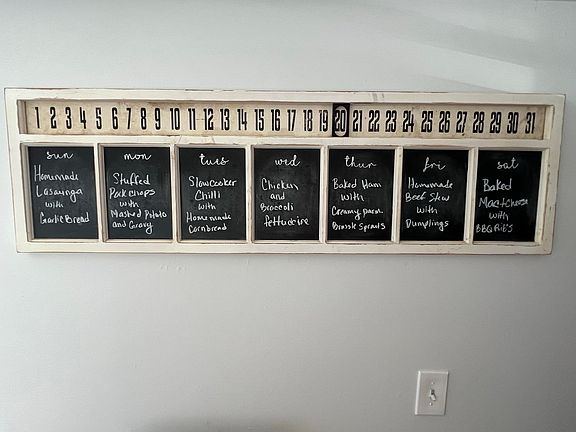 1 2 3 4 5 6 7 8 9 10 11 12 13 14 15 16 17 18 19 20 21 22 23 24 25 26 27 28 29 30 31
sun
Homemade
Lasaunga
with
Garlic Bread
mon
Stuffed
Pork chops
with
Mashed Potato
and Gravy
tues
Slowcooker
Chilli
with
Homemade
Cornbread
wed
Chicken
and
Broccoli
fettuccine
thur
Baked Ham
with
Creamy parm.
Brussle Sprouts
fri
Homemade
Beef Stew
with
Dumplings
sat
Baked
Mac+Cheese
with
BBQ Rib's